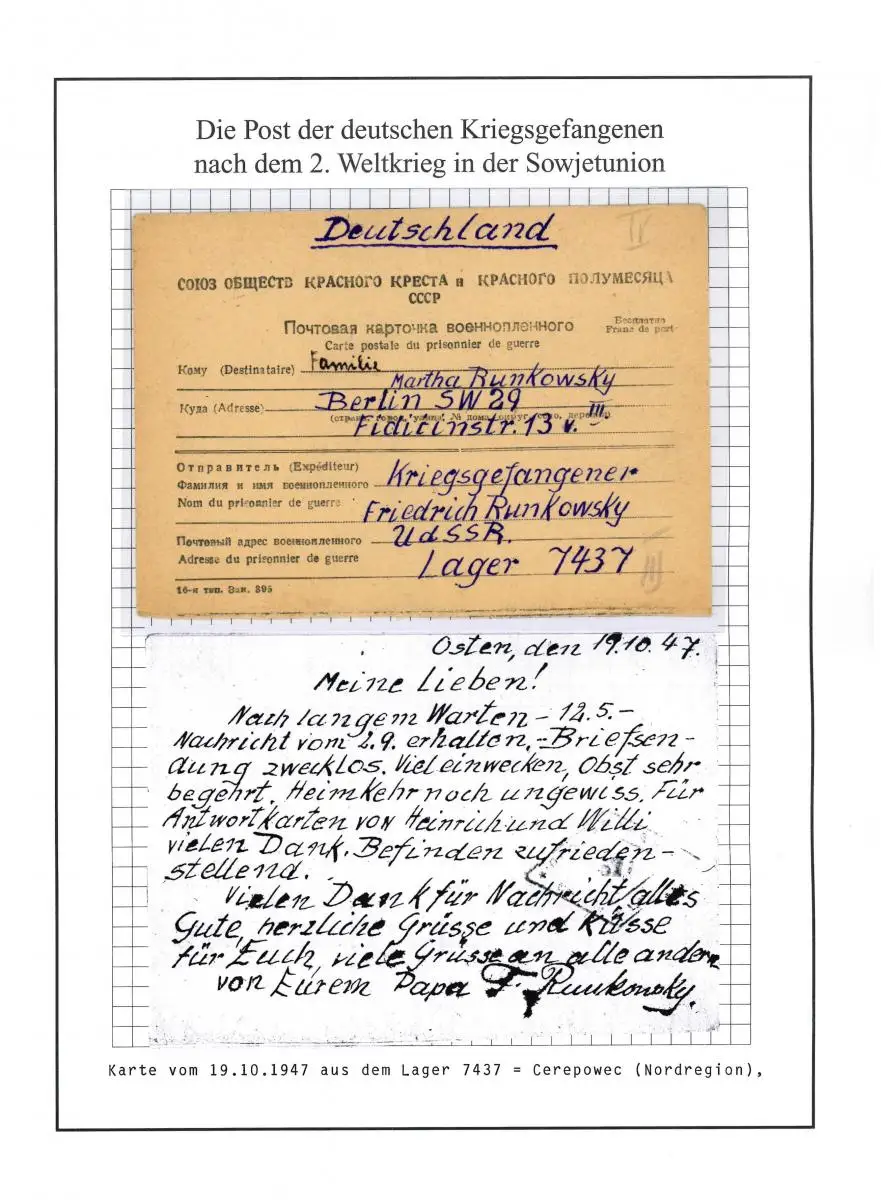 Die Post der deutschen Kriegsgefangenen
nach dem 2. Weltkrieg in der Sowjetunion
Deutschland
IV
СОЮЗ ОБЩЕСТВ КРАСНОГО КРЕСТА и КРАСНОГО ПОЛУМЕСЯЦА
СССР
Почтовая карточка военнопленного
Бесплатно
Franc de port
Carte postale du prisonnier de guerre
Кому (Destinataire) Familie
Martha Runkowsky
Куда (Adresse) Berlin SW 29
(страна, город, улица, № дома, округ, село, деревня)
Fidicinstr. 13 v. III.
Отправитель (Expéditeur)
Фамилия и имя военнопленного Kriegsgefangener
Nom du prisonnier de guerre Friedrich Runkowsky
Почтовый адрес военнопленного UdSSR.
Adresse du prisonnier de guerre Lager 7437
16-я тип. Зак. 395
Osten, den 19.10.47.
Meine Lieben!
Nach langem Warten – 12.5. –
Nachricht vom 2.9. erhalten. – Briefsen-
dung zwecklos. Viel einwecken, Obst sehr
begehrt. Heimkehr noch ungewiss. Für
Antwortkarten von Heinrich und Willi
vielen Dank. Befinden zufrieden-
stellend.
Vielen Dank für Nachricht, alles
Gute, herzliche Grüsse und Küsse
für Euch, viele Grüsse an alle andern
von Eurem Papa F. Runkowsky.
Karte vom 19.10.1947 aus dem Lager 7437 = Cerepowec (Nordregion),